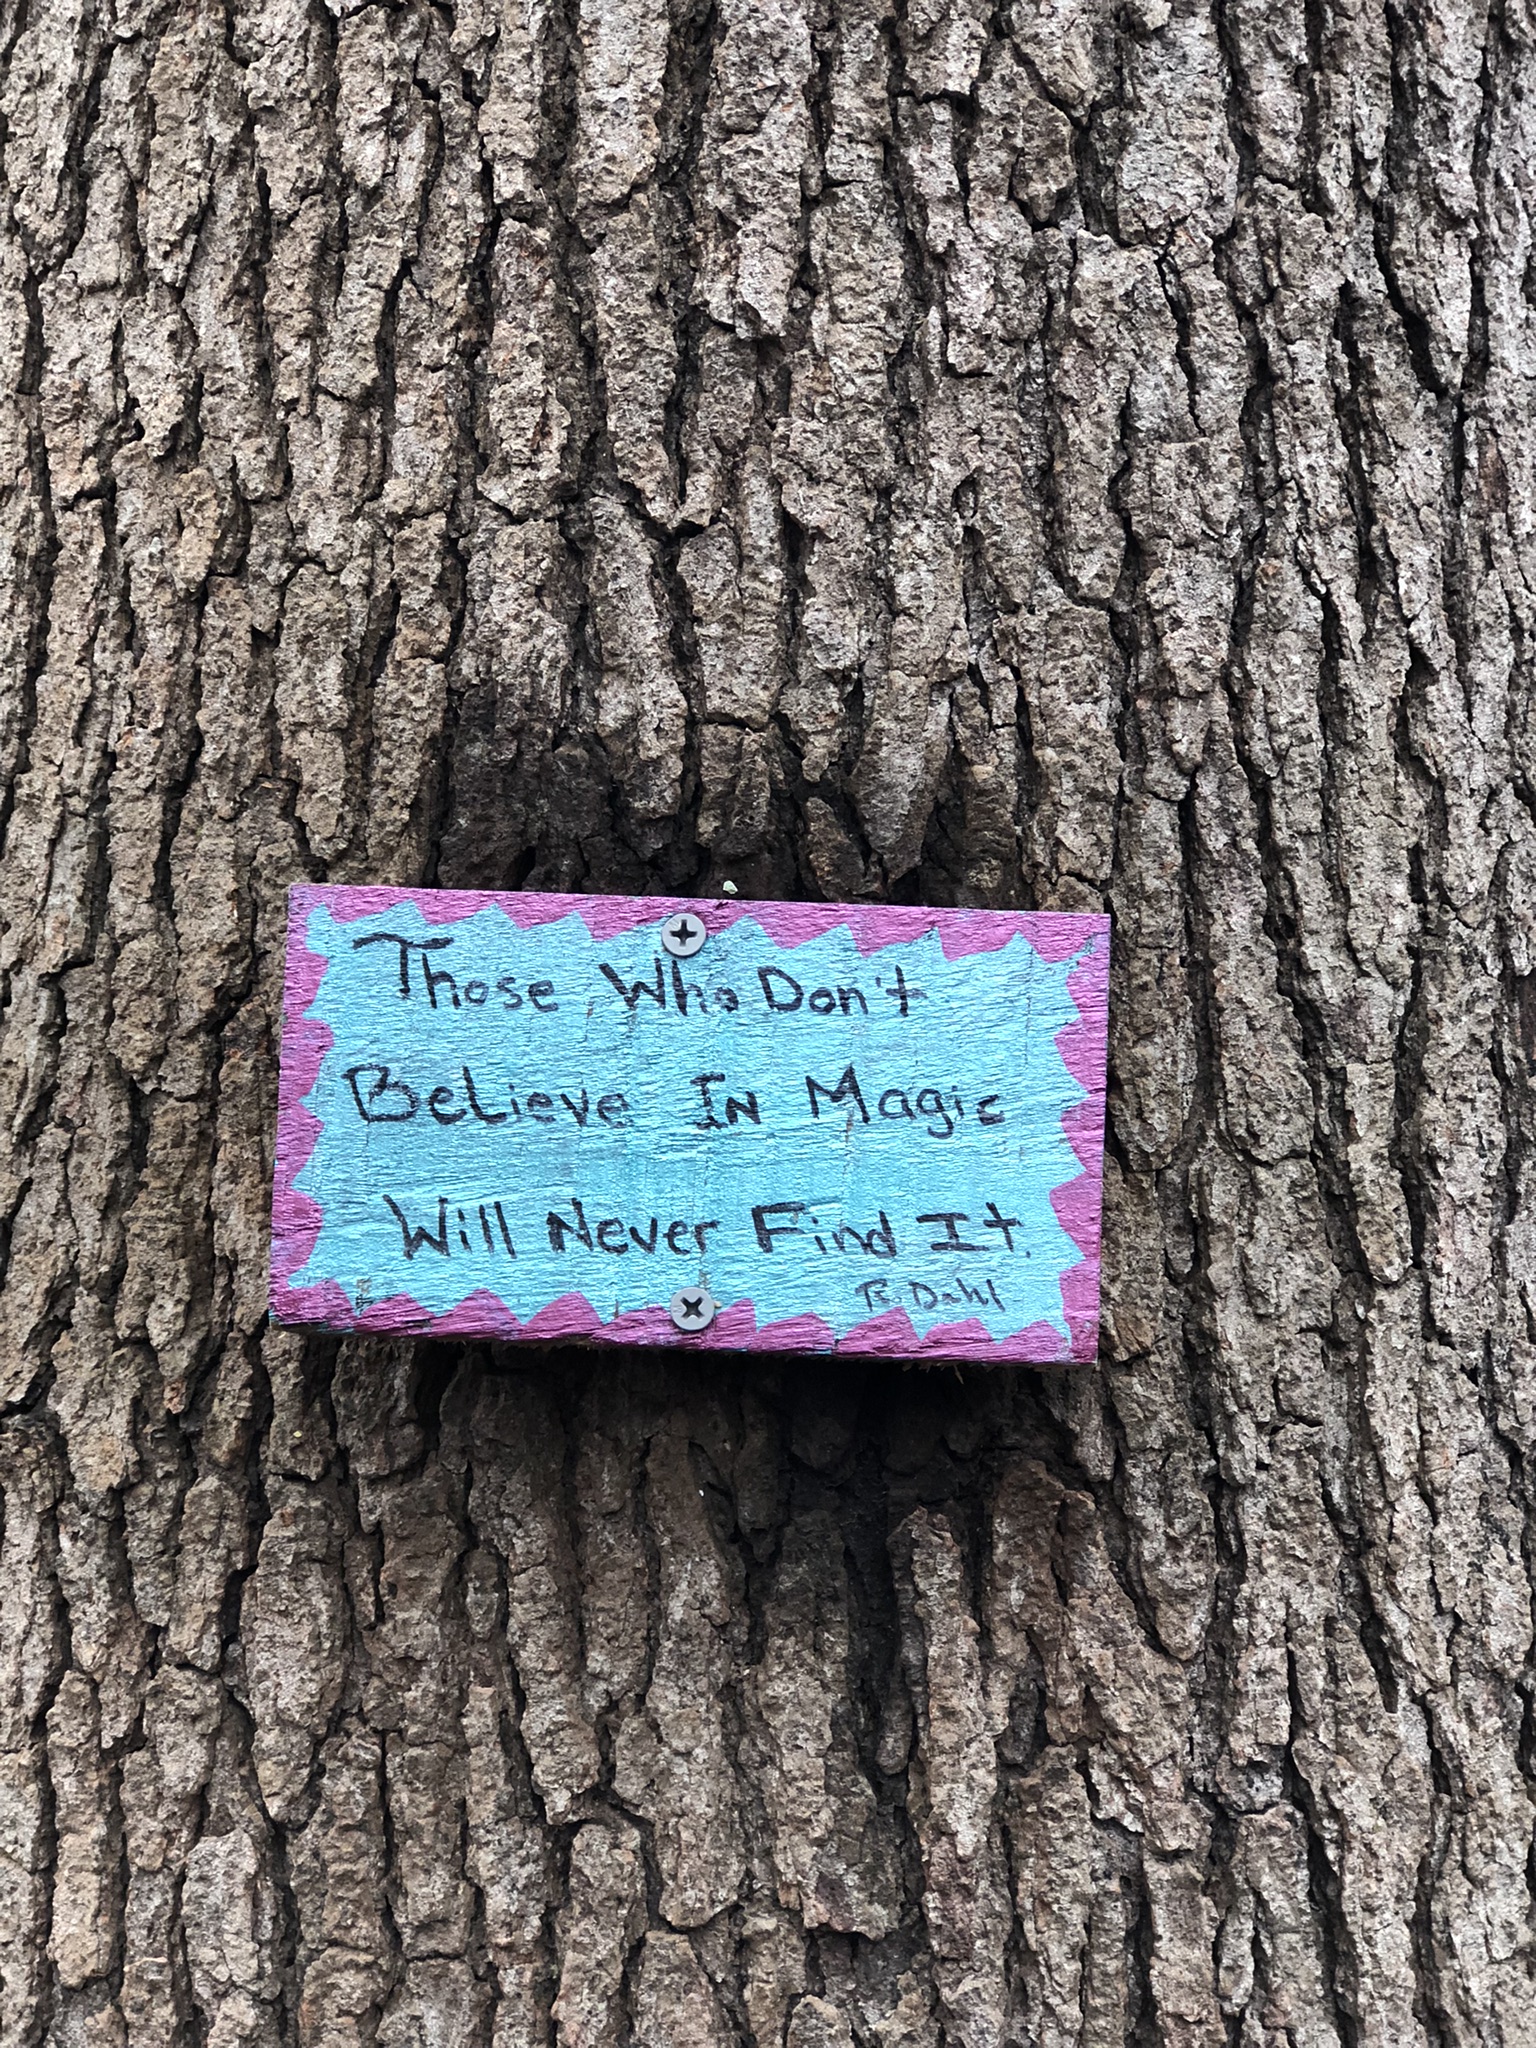 Those Who Don't
BeLieve In Magic
Will Never Find It.
R. Dahl